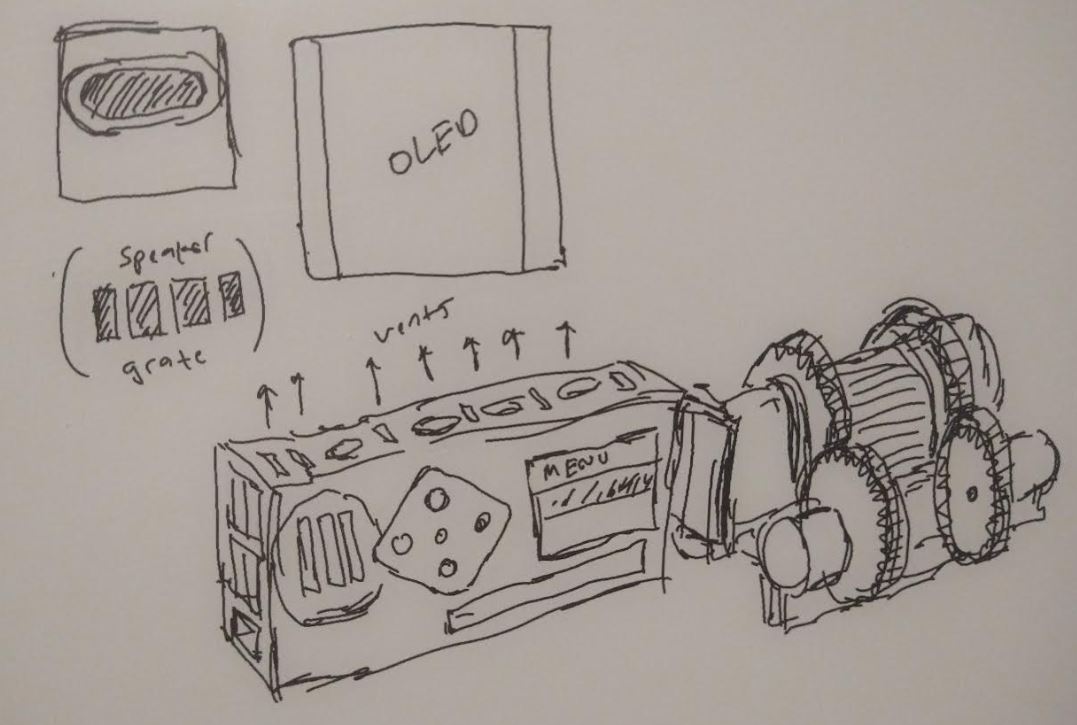 OLED
speaker
grate
vents
MENU